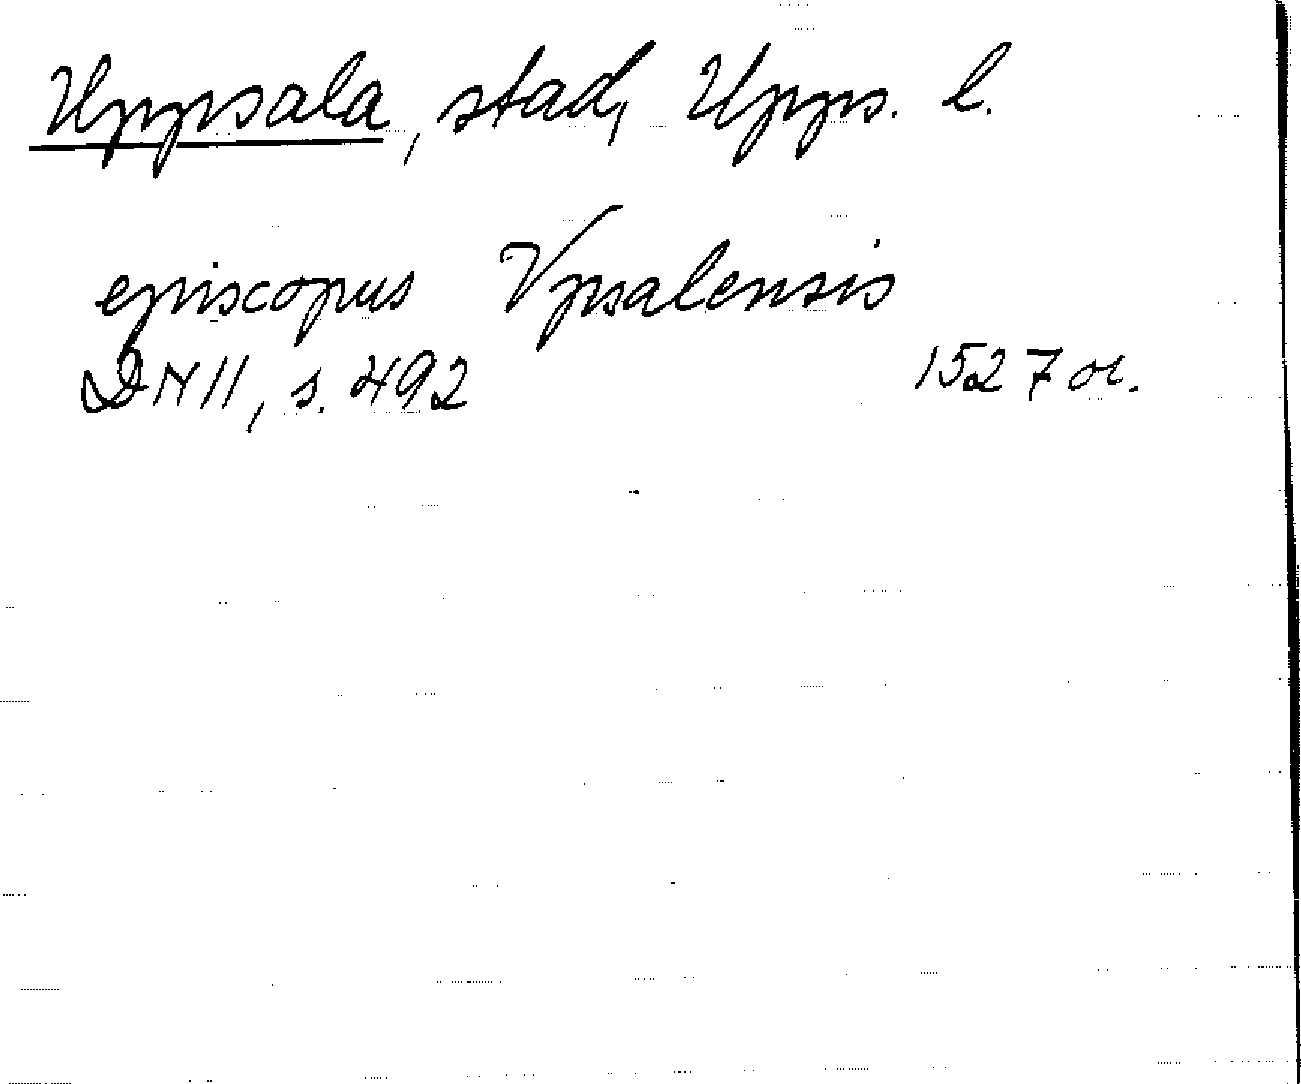 Uppsala, stad, Upps. l.
episcopus Vpsalensis
DN 11, s. 492 1527 or.